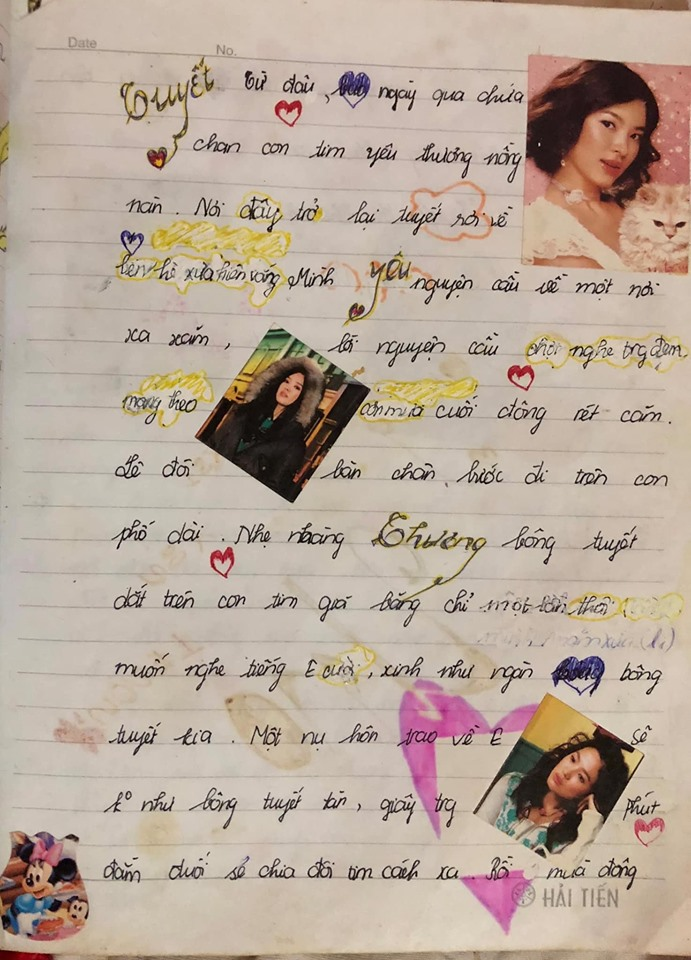 Date No.
Tuyết từ đâu, ngày qua chứa
chan con tim yêu thương nồng
nàn. Nơi đây trở lại tuyết rơi về
bên hè xưa hiên vắng Mình yêu nguyện cầu về một nơi
xa xăm, lời nguyện cầu chợt nghe trg đêm.
mang theo cơn mưa cuối đông rét căm.
Lê đôi bàn chân, bước đi trên con
phố dài. Nhẹ nhàng Thương bông tuyết
dắt trên con tim giá băng chỉ một lần thôi
muốn nghe tiếng E cười, xinh như ngàn bông
tuyết kia. Một nụ hôn trao về E Sẽ
k° như bông tuyết tàn, giây trg phút
đắm đuối sẽ chia đôi tim cách xa. Rồi mùa đông
HẢI TIẾN